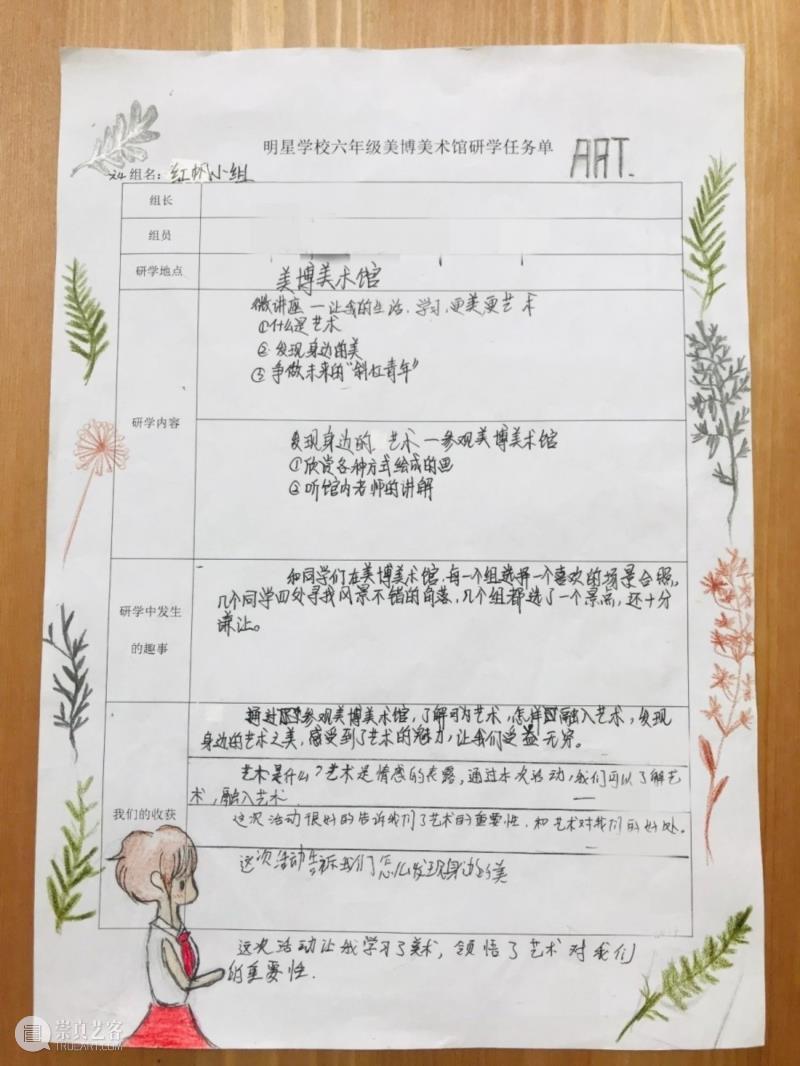 明星学校六年级美博美术馆研学任务单
ART.
组名：红帆小组
组长
组员
研学地点
美博美术馆
研学内容
微讲座—让我的生活、学习，更美更艺术
①什么是艺术
②发现身边的美
③争做未来的“斜杠青年”
发现身边的 艺术—参观美博美术馆
①欣赏各种方式绘成的画
②听馆内老师的讲解
研学中发生
的趣事
和同学们在美博美术馆，每一个组选择一个喜欢的场景合照，
几个同学四处寻找风景不错的角落，几个组都选了一个景点，还十分
谦让。
我们的收获
通过 参观美博美术馆，了解何为艺术，怎样 融入艺术，发现
身边的艺术之美，感受到了艺术的魅力，让我们受益无穷。
艺术是什么？艺术是情感的表露，通过本次活动，我们可以了解艺
术，融入艺术
这次活动很好的告诉我们了艺术的重要性，和艺术对我们的好处。
这次活动告诉我们怎么发现身边的美
这次活动让我学习了美术，领悟了艺术对我们
的重要性.
崇真艺客
TRUEART.COM